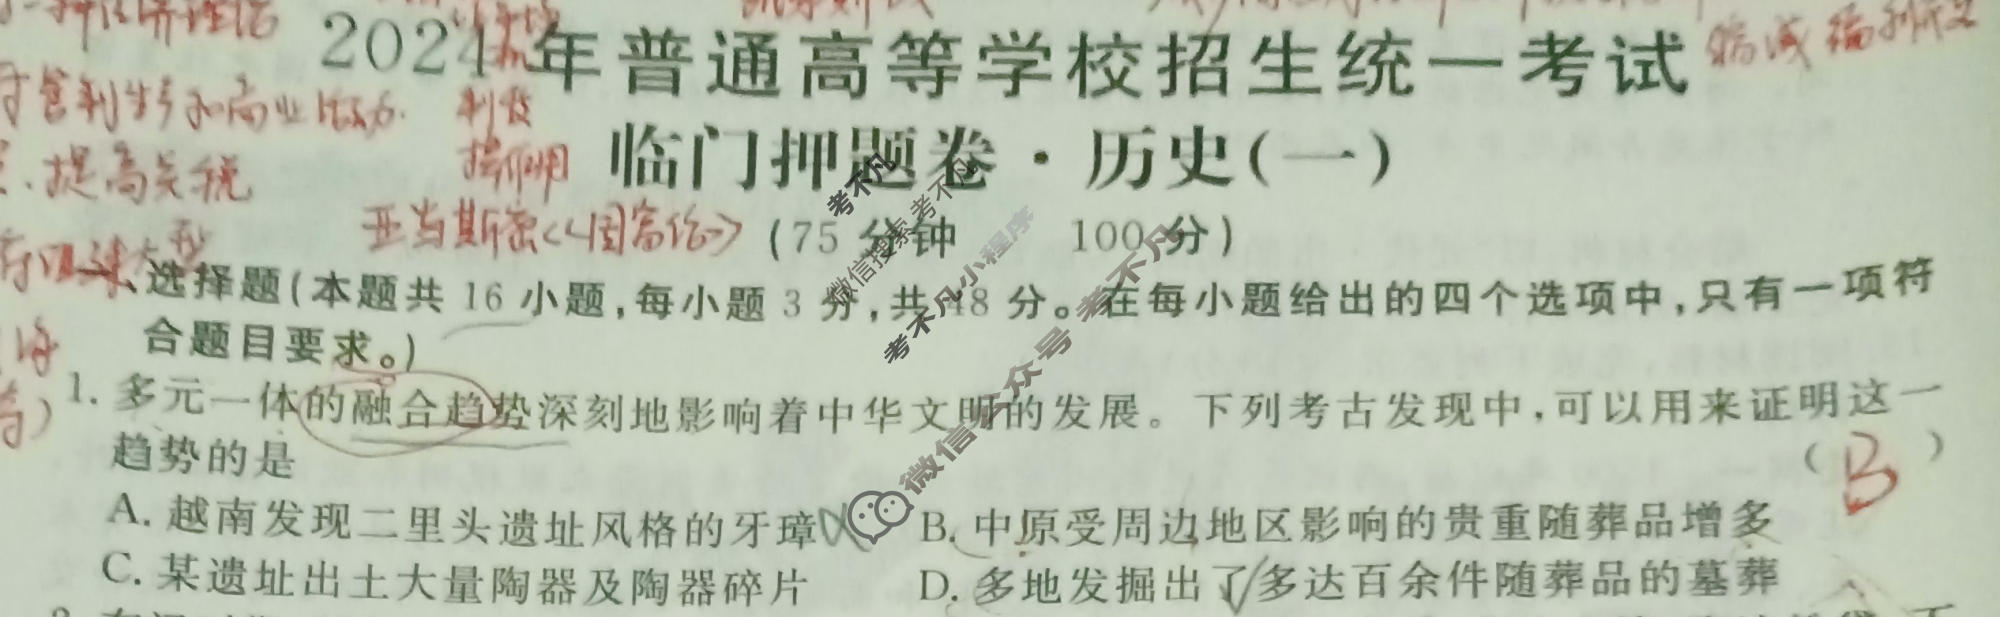 2024年普通高等学校招生统一考试
临门押题卷·历史(一)
提高关税
亚当斯密《国富论》
(75分钟 100分)
选择题(本题共16小题,每小题3分,共48分。在每小题给出的四个选项中,只有一项符
合题目要求。)
1. 多元一体的融合趋势深刻地影响着中华文明的发展。下列考古发现中,可以用来证明这一
趋势的是 ( B )
A. 越南发现二里头遗址风格的牙璋 B. 中原受周边地区影响的贵重随葬品增多
C. 某遗址出土大量陶器及陶器碎片 D. 多地发掘出了多达百余件随葬品的墓葬
考不凡
微信搜索 考不凡
考不凡小程序
微信公众号 考不凡